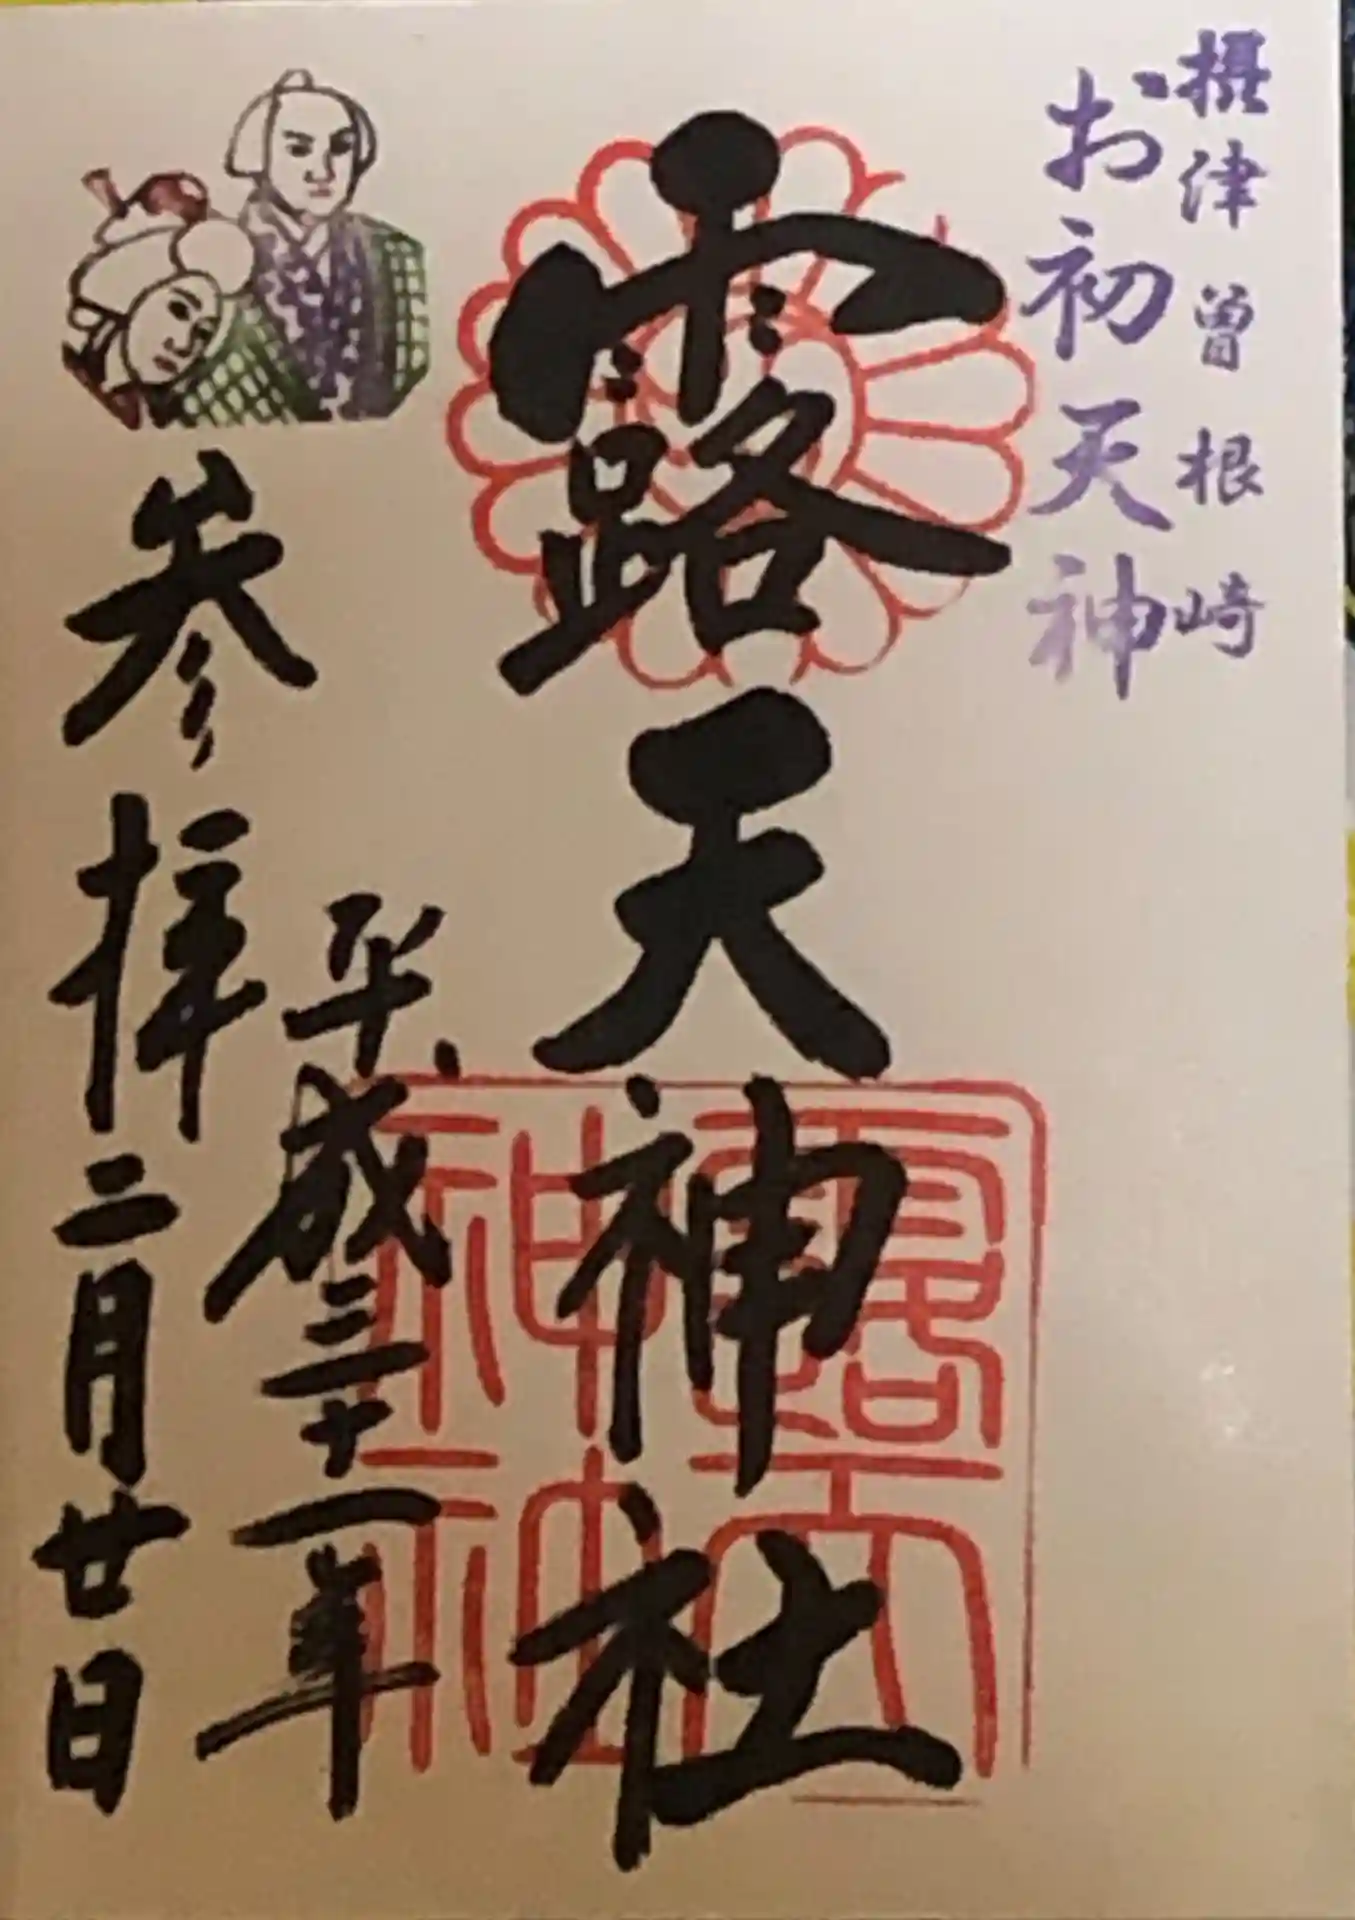 摂津曽根崎
お初天神
露天神社
平成三十一年
参拝二月廿日
露天神社